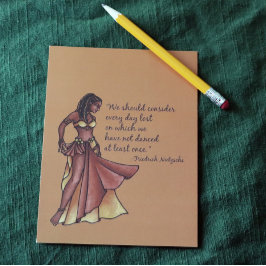 "We should consider
every day lost
on which we
have not danced
at least once."
Friedrich Nietzsche